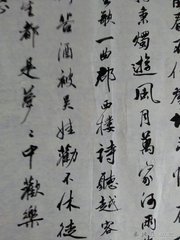 秉燭遊風月萬家河兩
歌一曲郡西樓詩聽越客
苦酒被吳娃勸不休從
生都是夢〻中歡樂